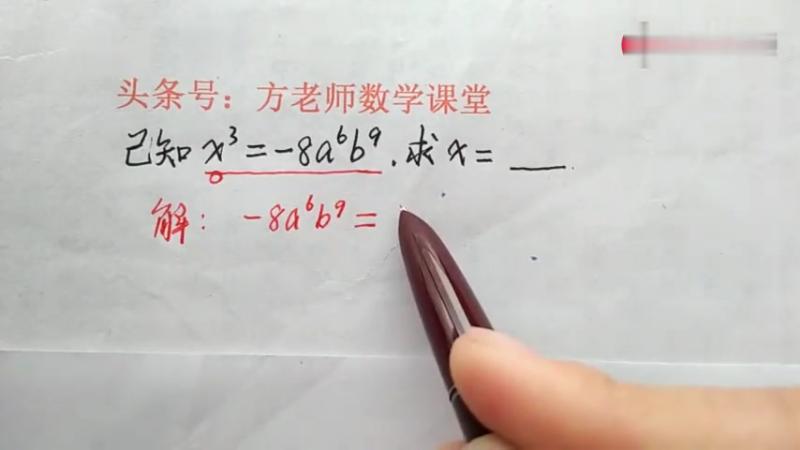 头条号：方老师数学课堂
已知 x³=-8a⁶b⁹.求x=___.
解：-8a⁶b⁹=